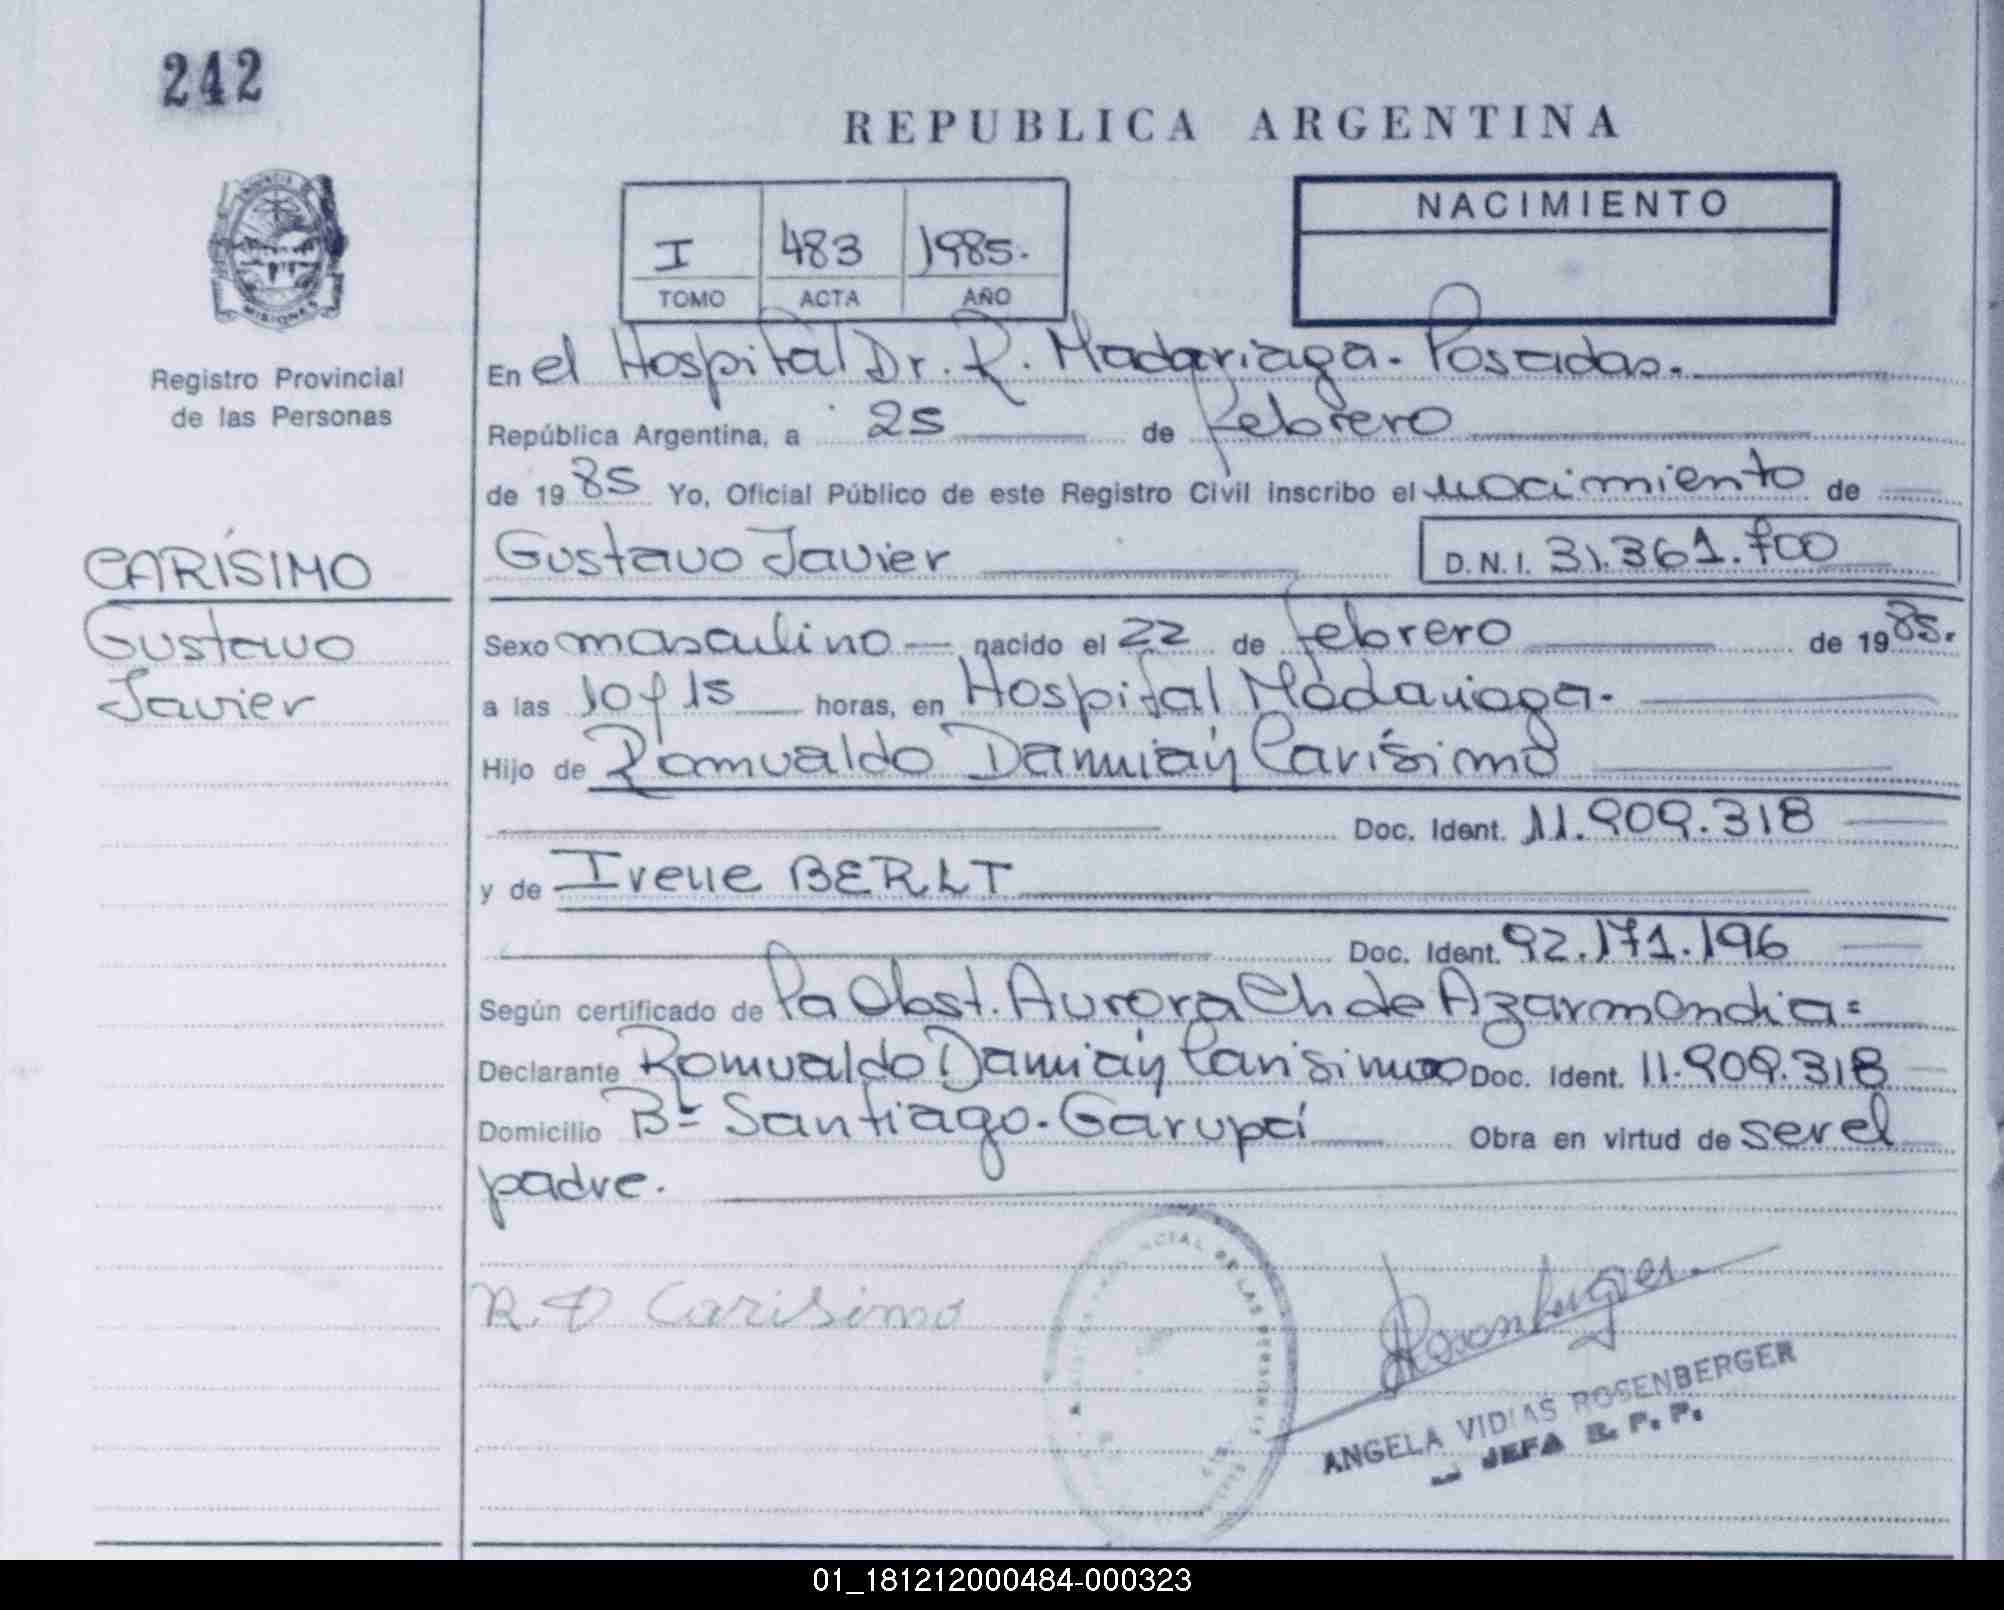 242
REPUBLICA ARGENTINA
NACIMIENTO
I 483 1985.
TOMO ACTA AÑO
MISIONES
Registro Provincial
de las Personas
En el Hospital Dr. R. Madariaga. Posadas.
República Argentina, a 25 de febrero
de 1985 Yo, Oficial Público de este Registro Civil inscribo el nacimiento de
CARÍSIMO
Gustavo
Javier
Gustavo Javier D.N.I. 31.361.700
Sexo masculino nacido el 22 de febrero de 1985.
a las 10 y 15 horas, en Hospital Madariaga.
Hijo de Romualdo Damián Carísimo
Doc. Ident. 11.909.318
y de Irene BERLT
Doc. Ident. 92.171.196
Según certificado de la Obst. Aurora Ch de Azarmendia=
Declarante Romualdo Damián Carísimo Doc. Ident. 11.909.318
Domicilio Bº Santiago. Garupá Obra en virtud de ser el
padre.
R. D Carisimo
DE LAS PERSONAS
Rosenberger
ANGELA VIDIAS ROSENBERGER
JEFA R. P. P.
01_181212000484-000323